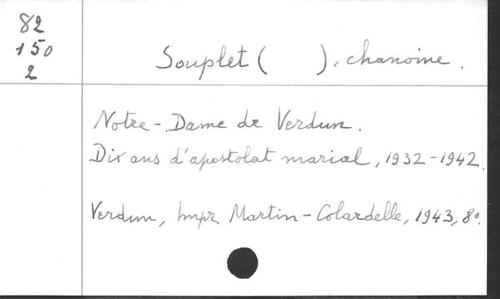 82
150
2
Souplet ( ), chanoine.
Notre-Dame de Verdun.
Dix ans d'apostolat marial, 1932-1942.
Verdun, Impr. Martin-Colardelle, 1943, 8º.